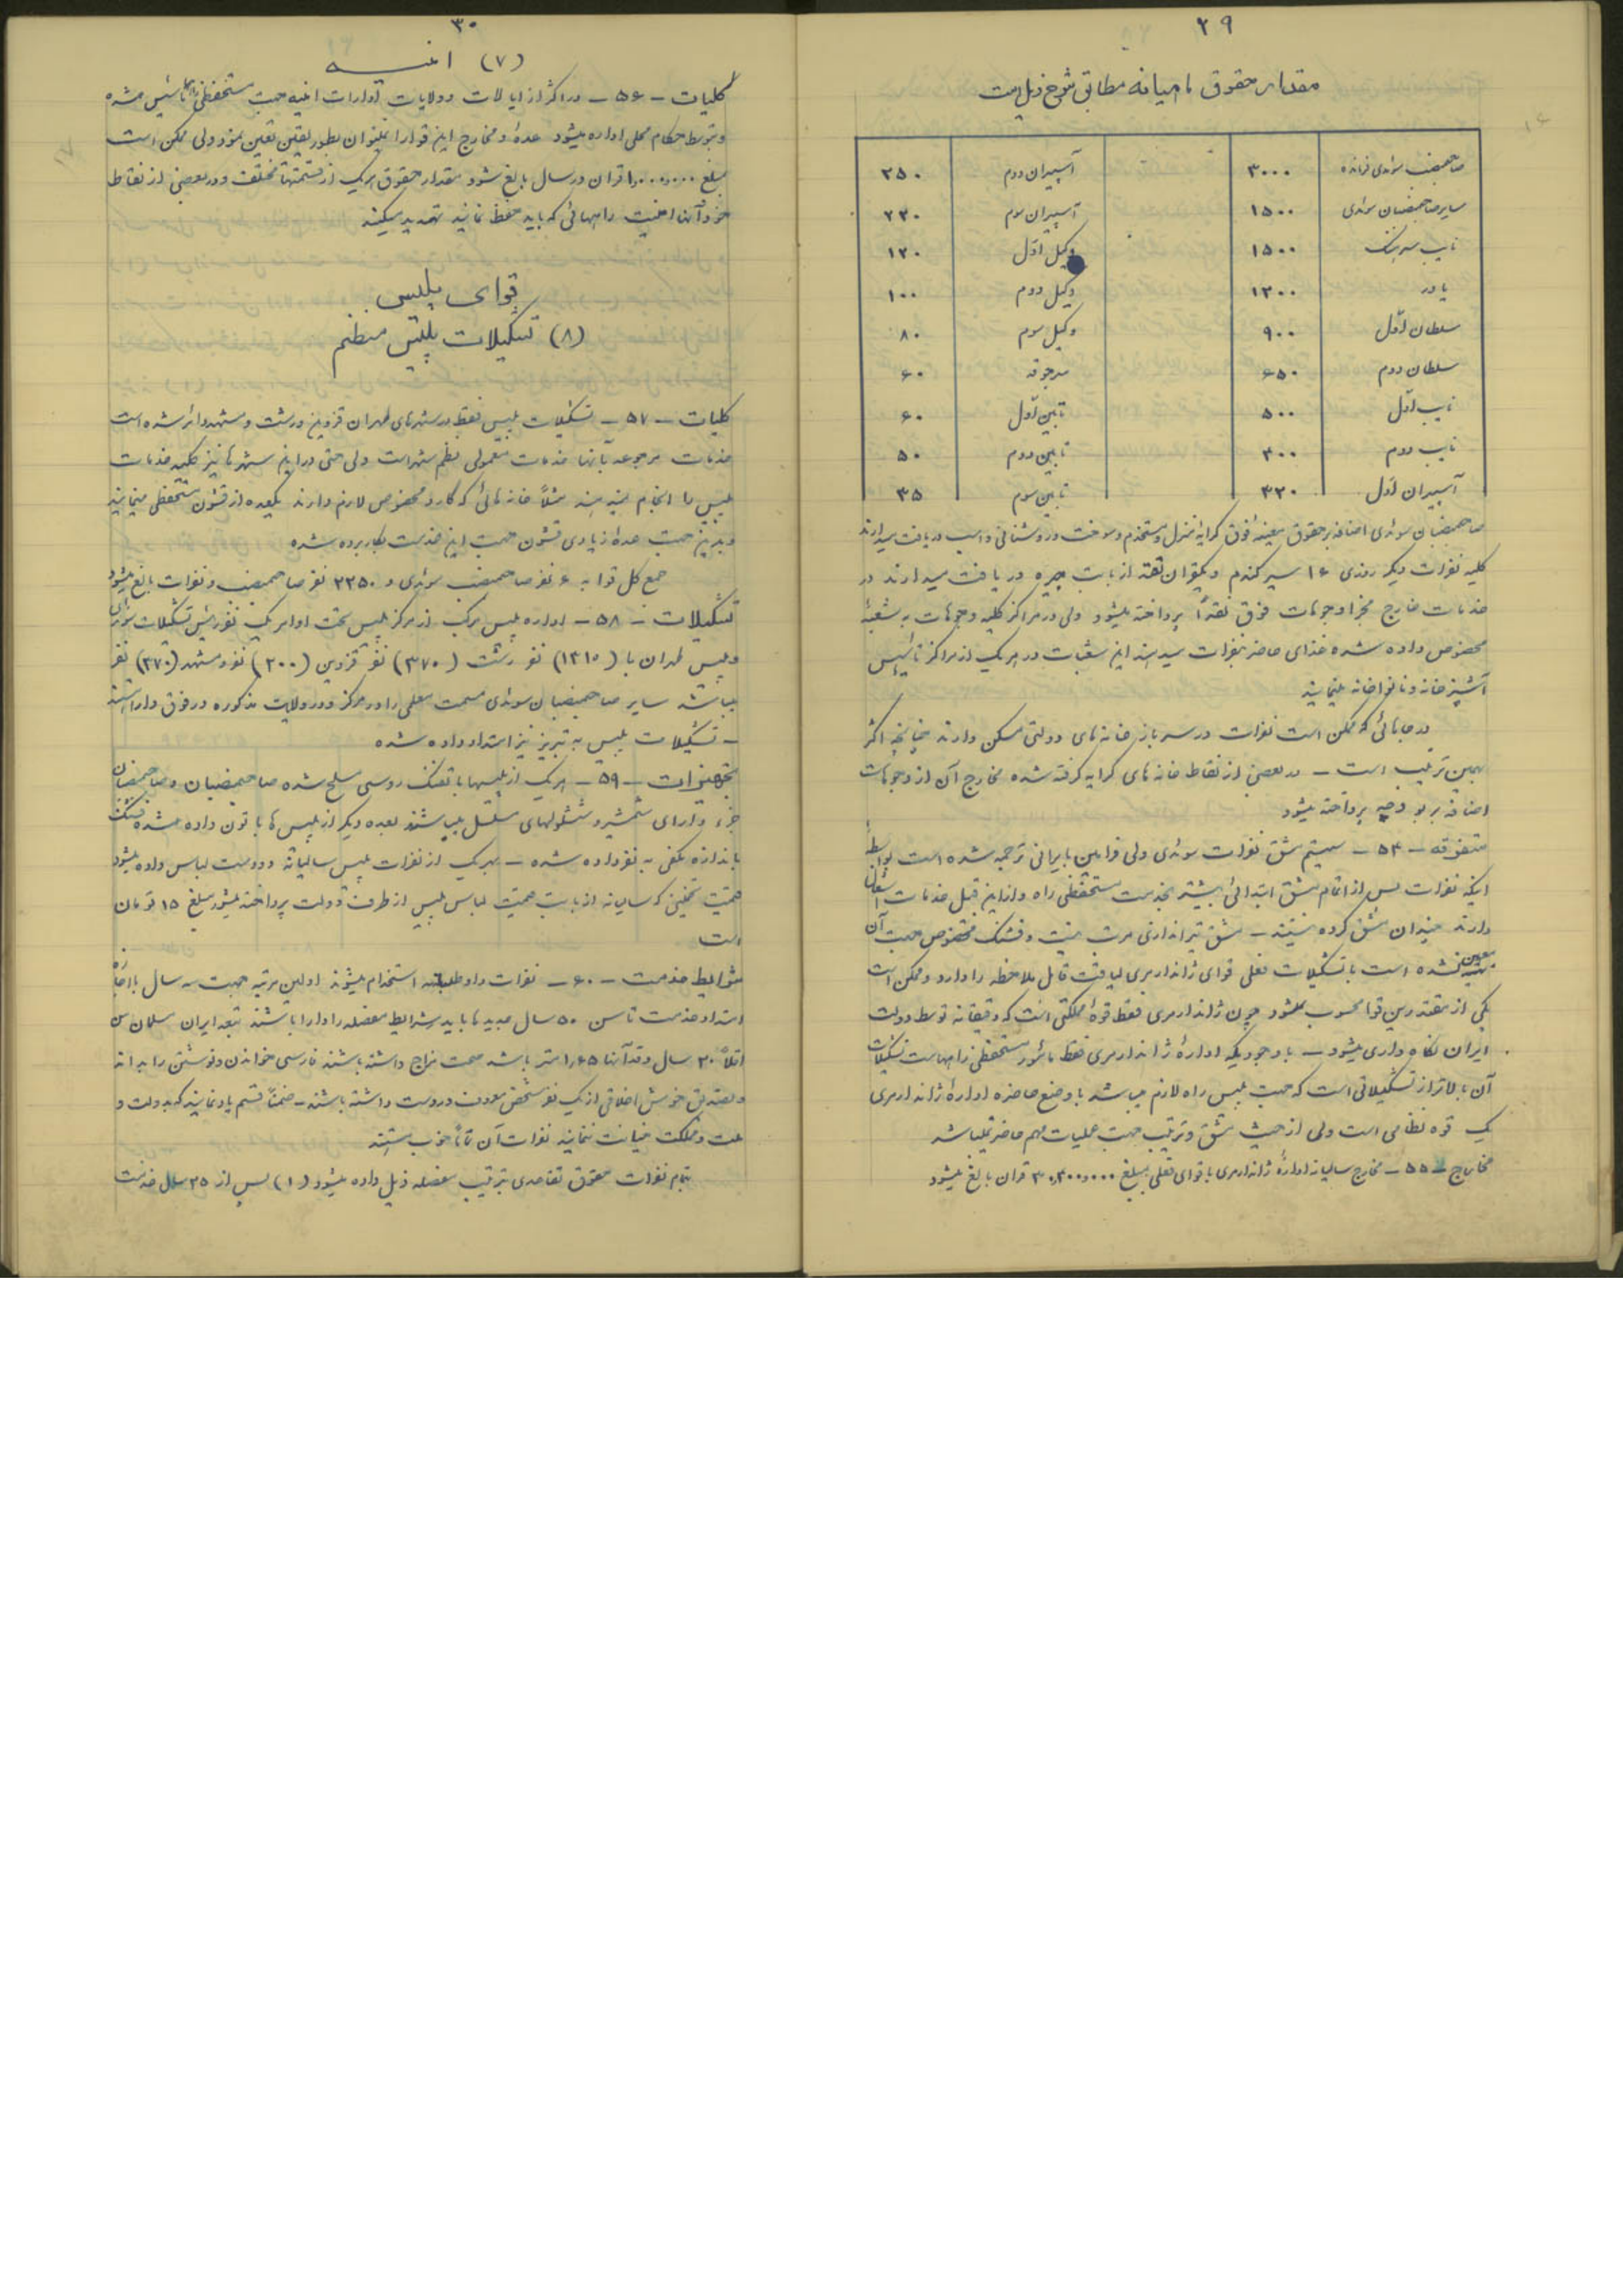 ۲۹
مقدار حقوق ماهیانه مطابق شرح ذیل است
صاحبمنصب سوئدی فرمانده ۳۰۰۰ آسپیران دوم ۲۵۰
سایر صاحبمنصبان سوئدی ۱۵۰۰ آسپیران سوم ۲۲۰
نایب سرهنگ ۱۵۰۰ وکیل اول ۱۲۰
یاور ۱۲۰۰ وکیل دوم ۱۰۰
سلطان اول ۹۰۰ وکیل سوم ۸۰
سلطان دوم ۶۵۰ سرجوقه ۶۰
نایب اول ۵۰۰ تابین اول ۶۰
نایب دوم ۴۰۰ تابین دوم ۵۰
آسپیران اول ۳۲۰ تابین سوم ۳۵
صاحبمنصبان سوئدی اضافه بر حقوق معینه فوق کرایه منزل و مستخدم و سوخت و روشنائی و اسب دریافت میدارند
کلیه نفرات دیگر روزی ۱۶ سیر گندم و یکقران نقد از بابت جیره دریافت میدارند در
خدمات خارج مجزا وجوهات فوق نقداً پرداخته میشود ولی در مراکز کلیه وجوهات به شعبهٔ
مخصوص داده شده غذای حاضر بنفرات میدهند این شعبات در هر یک از مراکز تأسیس
آشپزخانه و نانواخانه مینمایند
در جاهائی که ممکن است نفرات در سربازخانه‌های دولتی مسکن دارند چنانچه اکثر
بهمین ترتیب است – در بعضی از نقاط خانه‌های کرایه گرفته شده مخارج آن از وجوهات
اضافه بر بودجه پرداخته میشود
متفرقه – ۵۴ – سیستم مشق نفرات سوئدی ولی فرامین بایرانی ترجمه شده است بواسطهٔ
اینکه نفرات پس از اتمام مشق ابتدائی بیشتر بخدمت مستحفظی راه و از این قبیل خدمات اشتغال
دارند چندان مشق کرده نیستند – مشق تیراندازی مرتب نیست و فشنگ مخصوص جهت آن
معین نشده است با تشکیلات فعلی قوای ژاندارمری لیاقت قابل ملاحظه را دارد و ممکن است
یکی از مقتدرین قوا محسوب بشود چون ژاندارمری فقط قوهٔ مملکتی است که دقیقانه توسط دولت
ایران نگاه داری میشود – با وجودیکه ادارهٔ ژاندارمری فقط مأمور مستحفظی راههاست تشکیلات
آن بالاتر از تشکیلاتی است که جهت پلیس راه لازم میباشد با وضع حاضره ادارهٔ ژاندارمری
یک قوه نظامی است ولی از حیث مشق و ترتیب جهت عملیات مهم حاضر نمیباشد
مخارج – ۵۵ – مخارج سالیانه ادارهٔ ژاندارمری با قوای فعلی بمبلغ ۳۰٫۴۰۰٫۰۰۰ قران بالغ میشود
۳۰
(۷) امنیه
کلیات – ۵۶ – در اکثر از ایالات و ولایات ادارات امنیه جهت مستحفظی راهها تأسیس شده
و توسط حکام محلی اداره میشود عده و مخارج این قوا را نمیتوان بطور یقین تعین نمود ولی ممکن است
بمبلغ ۱۰٫۰۰۰٫۰۰۰ قران در سال بالغ شود مقدار حقوق هر یک از قسمتها مختلف و در بعضی از نقاط
خود آنها امنیت راههائی که باید حفظ نمایند تهدید میکنند
قوای پلیس
(۸) تشکیلات پلیس منظم
کلیات – ۵۷ – تشکیلات پلیس فقط در شهرهای طهران قزوین و رشت و مشهد دائر شده است
خدمات مرجوعه بآنها خدمات معمولی نظم شهر است ولی حتی در این شهرها نیز کلیه خدمات
پلیس را انجام نمیدهند مثلاً خانه‌هائی که گارد مخصوص لازم دارند یکعده از قشون مستحفظی مینمایند
و بدین جهت عدهٔ زیادی قشون جهت این خدمت بکار برده شده
جمع کل قوا به ۶ نفر صاحبمنصب سوئدی و ۲۲۵۰ نفر صاحبمنصب و نفرات بالغ میشود
تشکیلات – ۵۸ – اداره پلیس مرکب از مرکز پلیس تحت اوامر یک نفر رئیس تشکیلات سوئدی
و پلیس طهران با (۱۳۱۰) نفر رشت (۳۷۰) نفر قزوین (۲۰۰) نفر و مشهد (۳۷۰) نفر
میباشد سایر صاحبمنصبان سوئدی سمت معلمی را در مرکز و در ولایت مذکوره در فوق دارا هستند
– تشکیلات پلیس به تبریز نیز امتداد داده شده
تجهیزات – ۵۹ – هر یک از پلیسها با تفنگ روسی مسلح شده صاحبمنصبان و صاحبمنصبان
جزء دارای شمشیر و ششلولهای مسلسل میباشند بعده دیگر از پلیس‌ها باتون داده شده فشنگ
باندازه مکفی به نفر داده شده – بهر یک از نفرات پلیس سالیانه دو دست لباس داده میشود
قیمت تخمینی که سالیانه از بابت قیمت لباس پلیس از طرف دولت پرداخته میشود مبلغ ۱۵ تومان
است
شرایط خدمت – ۶۰ – نفرات داوطلبانه استخدام میشوند اولین مرتبه جهت سه سال با اجازه
امتداد خدمت تا سن ۵۰ سال جدیدها باید شرایط مفصله را دارا باشند تبعه ایران مسلمان سن
اقلاً ۲۰ سال و قد آنها ۱۶۵ متر باشد صحت مزاج داشته باشند فارسی خواندن و نوشتن را بدانند
و تصدیق خوش اخلاقی از یک نفر شخص معروف در دست داشته باشند – ضمناً قسم یاد نمایند که بدولت و
ملت و مملکت خیانت ننمایند نفرات آن تماماً خوب هستند
بتمام نفرات حقوق تقاعدی بترتیب مفصله ذیل داده میشود (۱) پس از ۲۵ سال خدمت